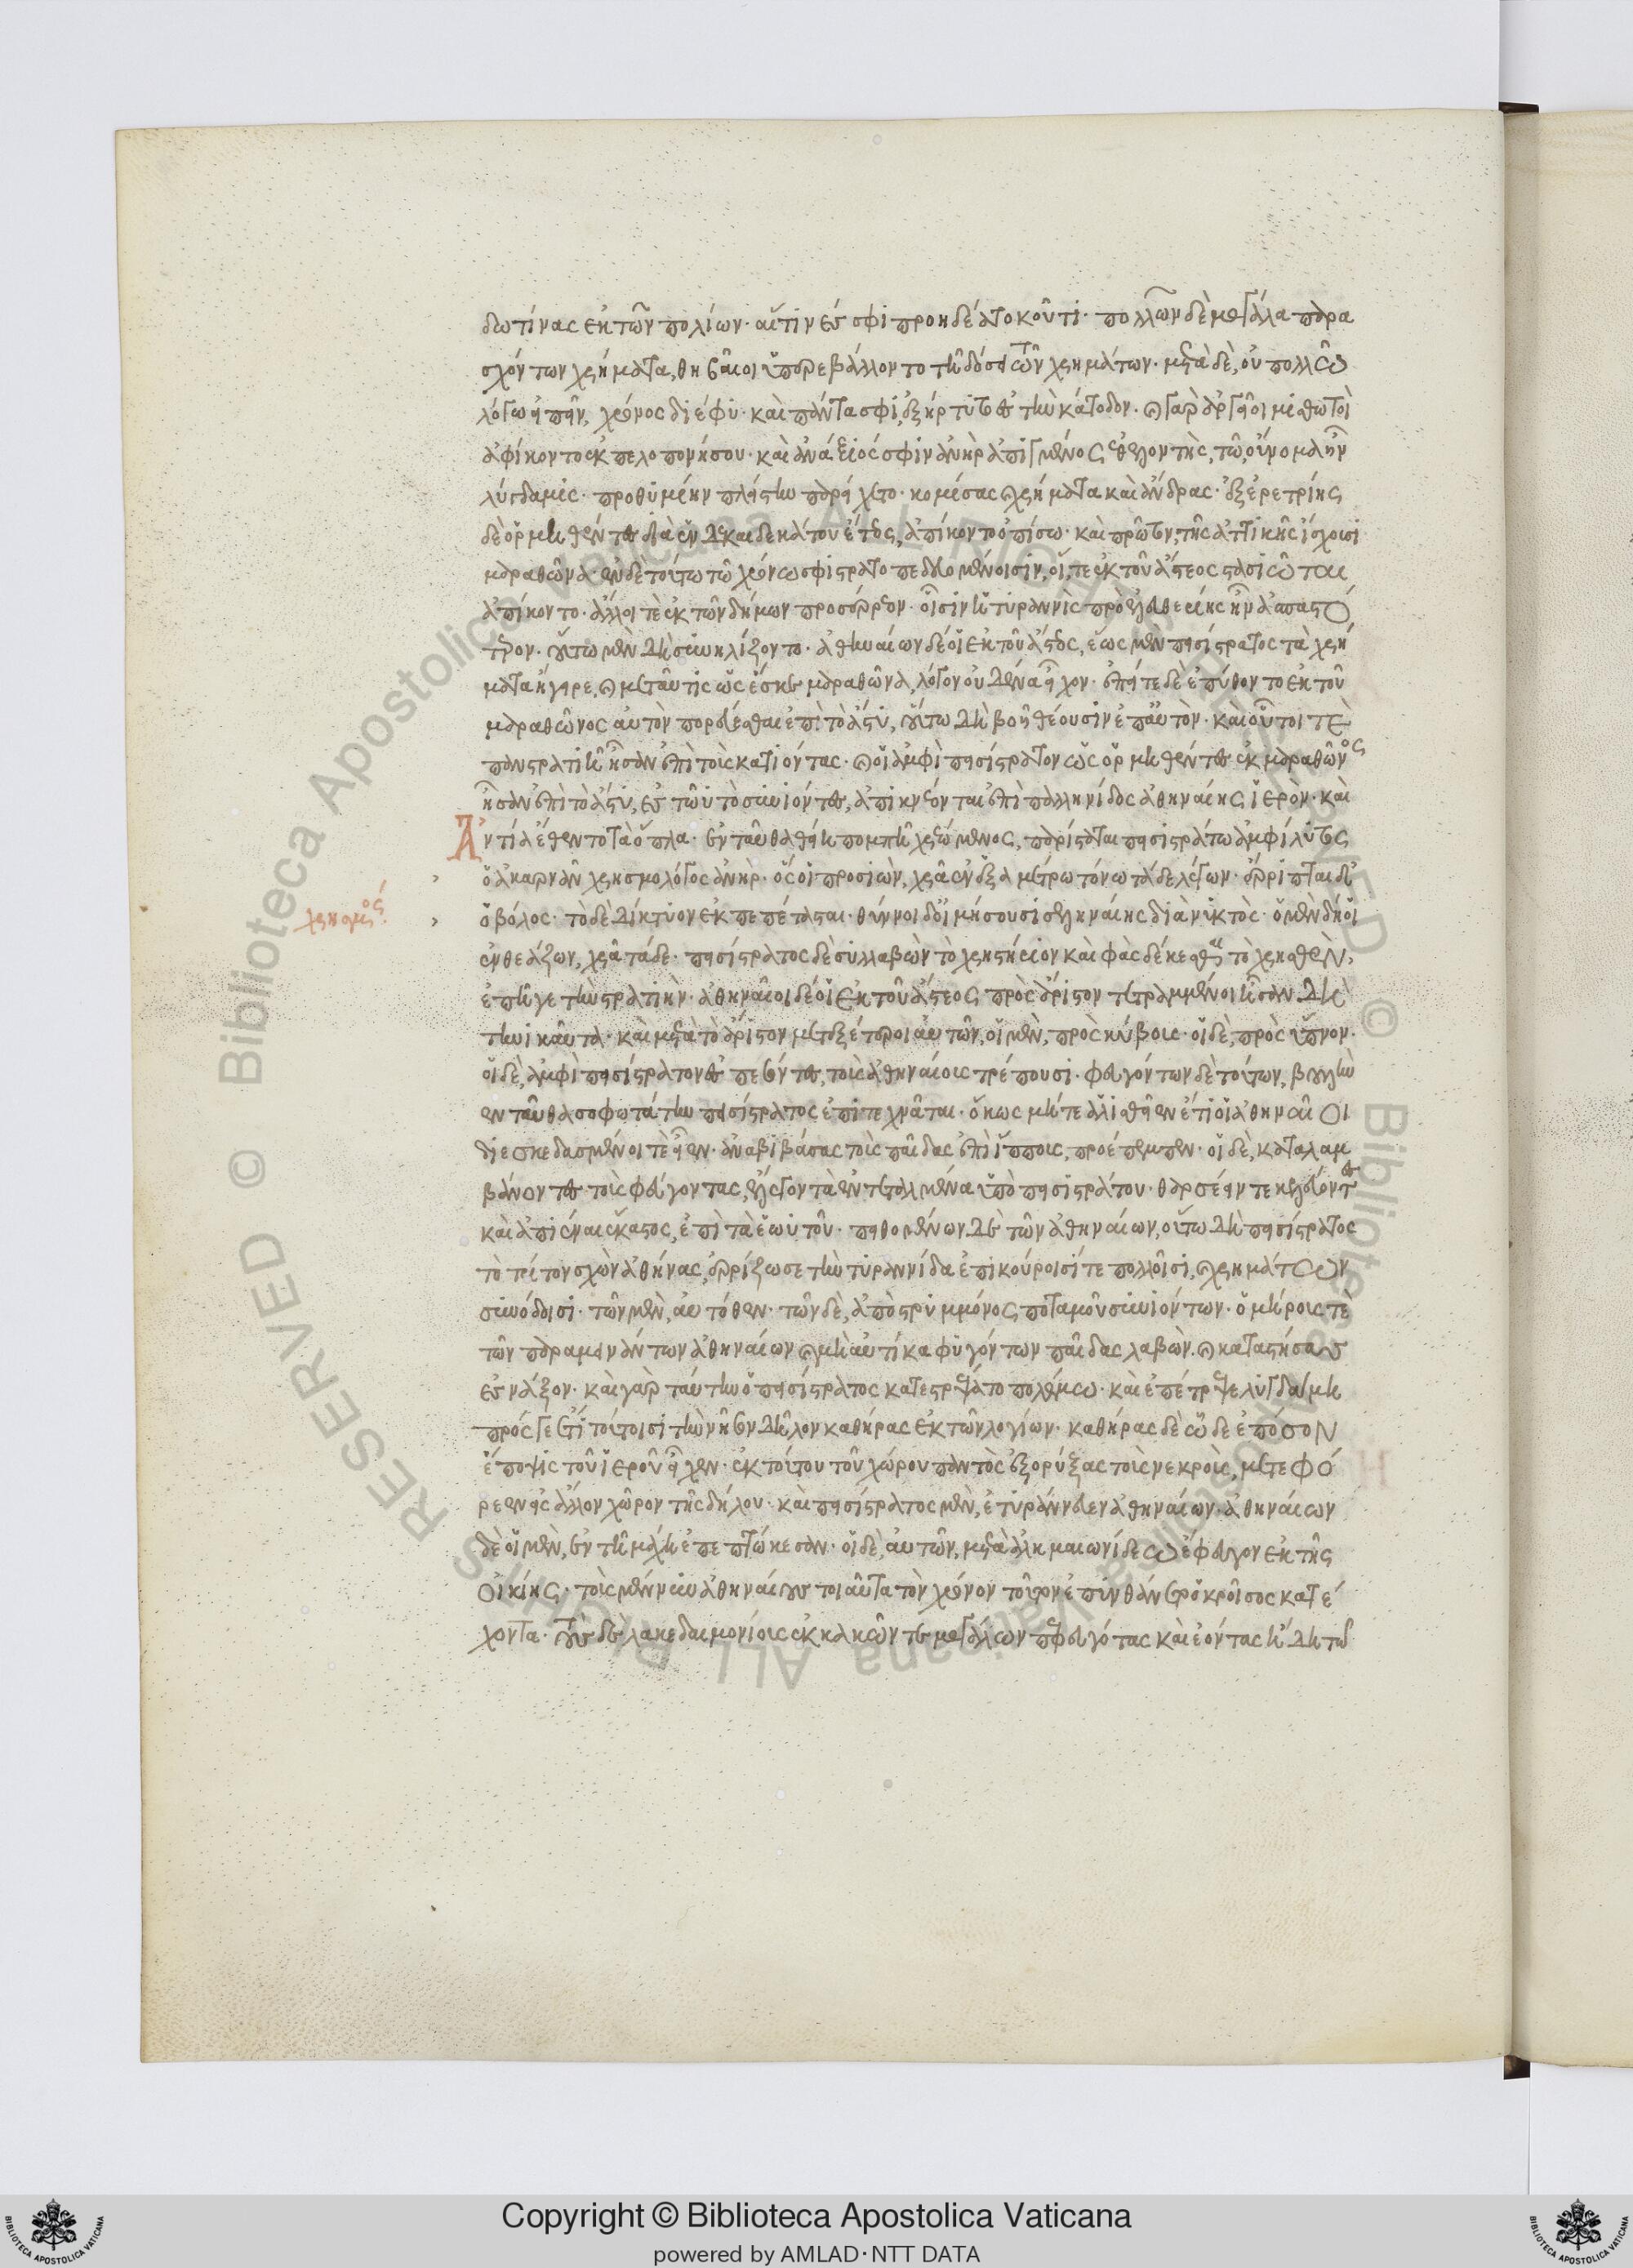 δωτίνας ἐκ τῶν πολίων· αἵτινές σφι προηδέατο κοῦ τι· πολλῶν δὲ μεγάλα παρα
σχόντων χρήματα, θηβαῖοι ὑπερεβάλλοντο τῆ δόσει τῶν χρημάτων· μετὰ δὲ, οὐ πολλῶ
λόγω εἰπεῖν, χρόνος διέφυ· καὶ πάντα σφι ἐξήρτυτο ἐς τὴν κάτοδον· καὶ γὰρ ἀργεῖοι μισθωτοὶ
ἀφίκοντο ἐκ πελοποννήσου· καὶ νάξιός σφιν ἀνὴρ ἀπιγμένος ἐθελοντὴς, τῶ οὔνομα ἦν
λύγδαμις· προθυμίην πλείστην παρείχετο· κομίσας καὶ χρήματα καὶ ἄνδρας· ἐξ ἐρετρίης
δὲ ὁρμηθέντες διὰ ἑνδεκάτου ἔτεος, ἀπίκοντο ὀπίσω· καὶ πρῶτον, τῆς ἀττικῆς ἴσχουσι
μαραθῶνα· ἐν δὲ τούτω τῶ χρόνω σφι στρατοπεδευομένοισιν, οἵ τε ἐκ τοῦ ἄστεος στασιῶται
ἀπίκοντο· ἄλλοι τὲ ἐκ τῶν δήμων προσέρρεον· οἷσιν ἡ τυραννὶς πρὸ ἐλευθερίης ἦν ἀσπαστό
τερον· οὗτοι μὲν δὴ συνηλίζοντο· ἀθηναίων δὲ οἱ ἐκ τοῦ ἄστεος, ἕως μὲν πεισίστρατος τὰ χρή
ματα ἤγειρε, καὶ μεταῦτις ὡς ἔσχε μαραθῶνα, λόγον οὐδένα εἶχον· ἐπεί τε δὲ ἐπύθοντο ἐκ τοῦ
μαραθῶνος αὐτὸν πορεύεσθαι ἐπὶ τὸ ἄστυ, οὕτω δὴ βοηθέουσιν ἐπ' αὐτὸν· καὶ οὗτοι τὲ
πανστρατιῇ ἤϊσαν ἐπὶ τοὺς κατιόντας· καὶ οἱ ἀμφὶ πεισίστρατον ὡς ὁρμηθέντες ἐκ μαραθῶνος
ἤϊσαν ἐπὶ τὸ ἄστυ, ἐς τὠυτὸ συνιόντες, ἀπικνέονται ἐπὶ παλληνίδος ἀθηναίης ἱερόν· καὶ
Ἀντία ἔθεντο τὰ ὅπλα· ἐνταῦθα θείη πομπῆ χρεώμενος, παρίσταται πεισιστράτω ἀμφίλυτος
ὁ ἀκαρνὰν χρησμολόγος ἀνὴρ· ὅς οἱ προσιὼν, χρᾶ ἐν ἑξαμέτρω τόνω τάδε λέγων· ἔρριπται δ'
χρησμός:
ὁ βόλος· τὸ δὲ δίκτυον ἐκπεπέτασται· θύννοι δ' οἰμήσουσι σεληναίης διὰ νυκτὸς· ὁ μὲν δή οἱ
ἐνθεάζων, χρᾶ τάδε· πεισίστρατος δὲ συλλαβὼν τὸ χρηστήριον καὶ φὰς δέκεσθαι τὸ χρησθὲν,
ἐπῆγε τὴν στρατιὴν· ἀθηναῖοι δὲ οἱ ἐκ τοῦ ἄστεος πρὸς ἄριστον τετραμμένοι ἦσαν δὴ
τηνικαῦτα· καὶ μετὰ τὸ ἄριστον μετεξέτεροι αὐτῶν, οἱ μὲν, πρὸς κύβους· οἱ δὲ, πρὸς ὕπνον·
οἱ δὲ, ἀμφὶ πεισίστρατον ἐσπεσόντες, τοὺς ἀθηναίους τρέπουσι· φευγόντων δὲ τούτων, βουλὴν
ἐνταῦθα σοφωτάτην πεισίστρατος ἐπιτεχνᾶται· ὅκως μήτε ἁλισθεῖεν ἔτι οἱ ἀθηναῖοι
διεσκεδασμένοι τὲ εἶεν· ἀναβιβάσας τοὺς παῖδας ἐπὶ ἵππους, προέπεμπεν· οἱ δὲ, καταλαμ
βάνοντες τοὺς φεύγοντας, ἔλεγον τὰ ἐντεταλμένα ὑπὸ πεισιστράτου· θαρσέειν τε κελεύοντες
καὶ ἀπιέναι ἕκαστος, ἐπὶ τὰ ἑωυτοῦ· πειθομένων δὲ τῶν ἀθηναίων, οὕτω δὴ πεισίστρατος
τὸ τρίτον σχὼν ἀθήνας, ἐρρίζωσε τὴν τυραννίδα ἐπικούροισί τε πολλοῖσι, καὶ χρημάτων
συνόδοισι· τῶν μὲν, αὐτόθεν· τῶν δὲ, ἀπὸ στρυμμόνος ποταμοῦ συνιόντων· ὁμήρους τὲ
τῶν παραμεινάντων ἀθηναίων καὶ μὴ αὐτίκα φυγόντων παῖδας λαβὼν· καὶ καταστήσας
ἐς νάξον· καὶ γὰρ ταύτην ὁ πεισίστρατος κατεστρέψατο πολέμω· καὶ ἐπέτρεψε λυγδάμη
πρός γε ἔτι τούτοισι τὴν νῆσον δῆλον καθήρας ἐκ τῶν λογίων· καθήρας δὲ ὧδε ἐπόσον
ἔποψις τοῦ ἱεροῦ εἶχεν· ἐκ τούτου τοῦ χώρου παντὸς ἐξορύξας τοὺς νεκροὺς, μετεφό
ρεεν εἰς ἄλλον χῶρον τῆς δήλου· καὶ πεισίστρατος μὲν, ἐτυράννευεν ἀθηναίων· ἀθηναίων
δὲ οἱ μὲν, ἐν τῆ μάχη ἐπεπτώκεσαν· οἱ δὲ, αὐτῶν, μετὰ ἀλκμαιωνίδεω ἔφευγον ἐκ τῆς
οἰκίης· τοὺς μέν νυν ἀθηναίους τοιαῦτα τὸν χρόνον τοῦτον ἐπυνθάνετο ὁ κροῖσος κατέ
χοντα· τοὺς δὲ λακεδαιμονίους ἐκ κακῶν τε μεγάλων πεφευγότας καὶ ἐόντας ἤδη τῶ